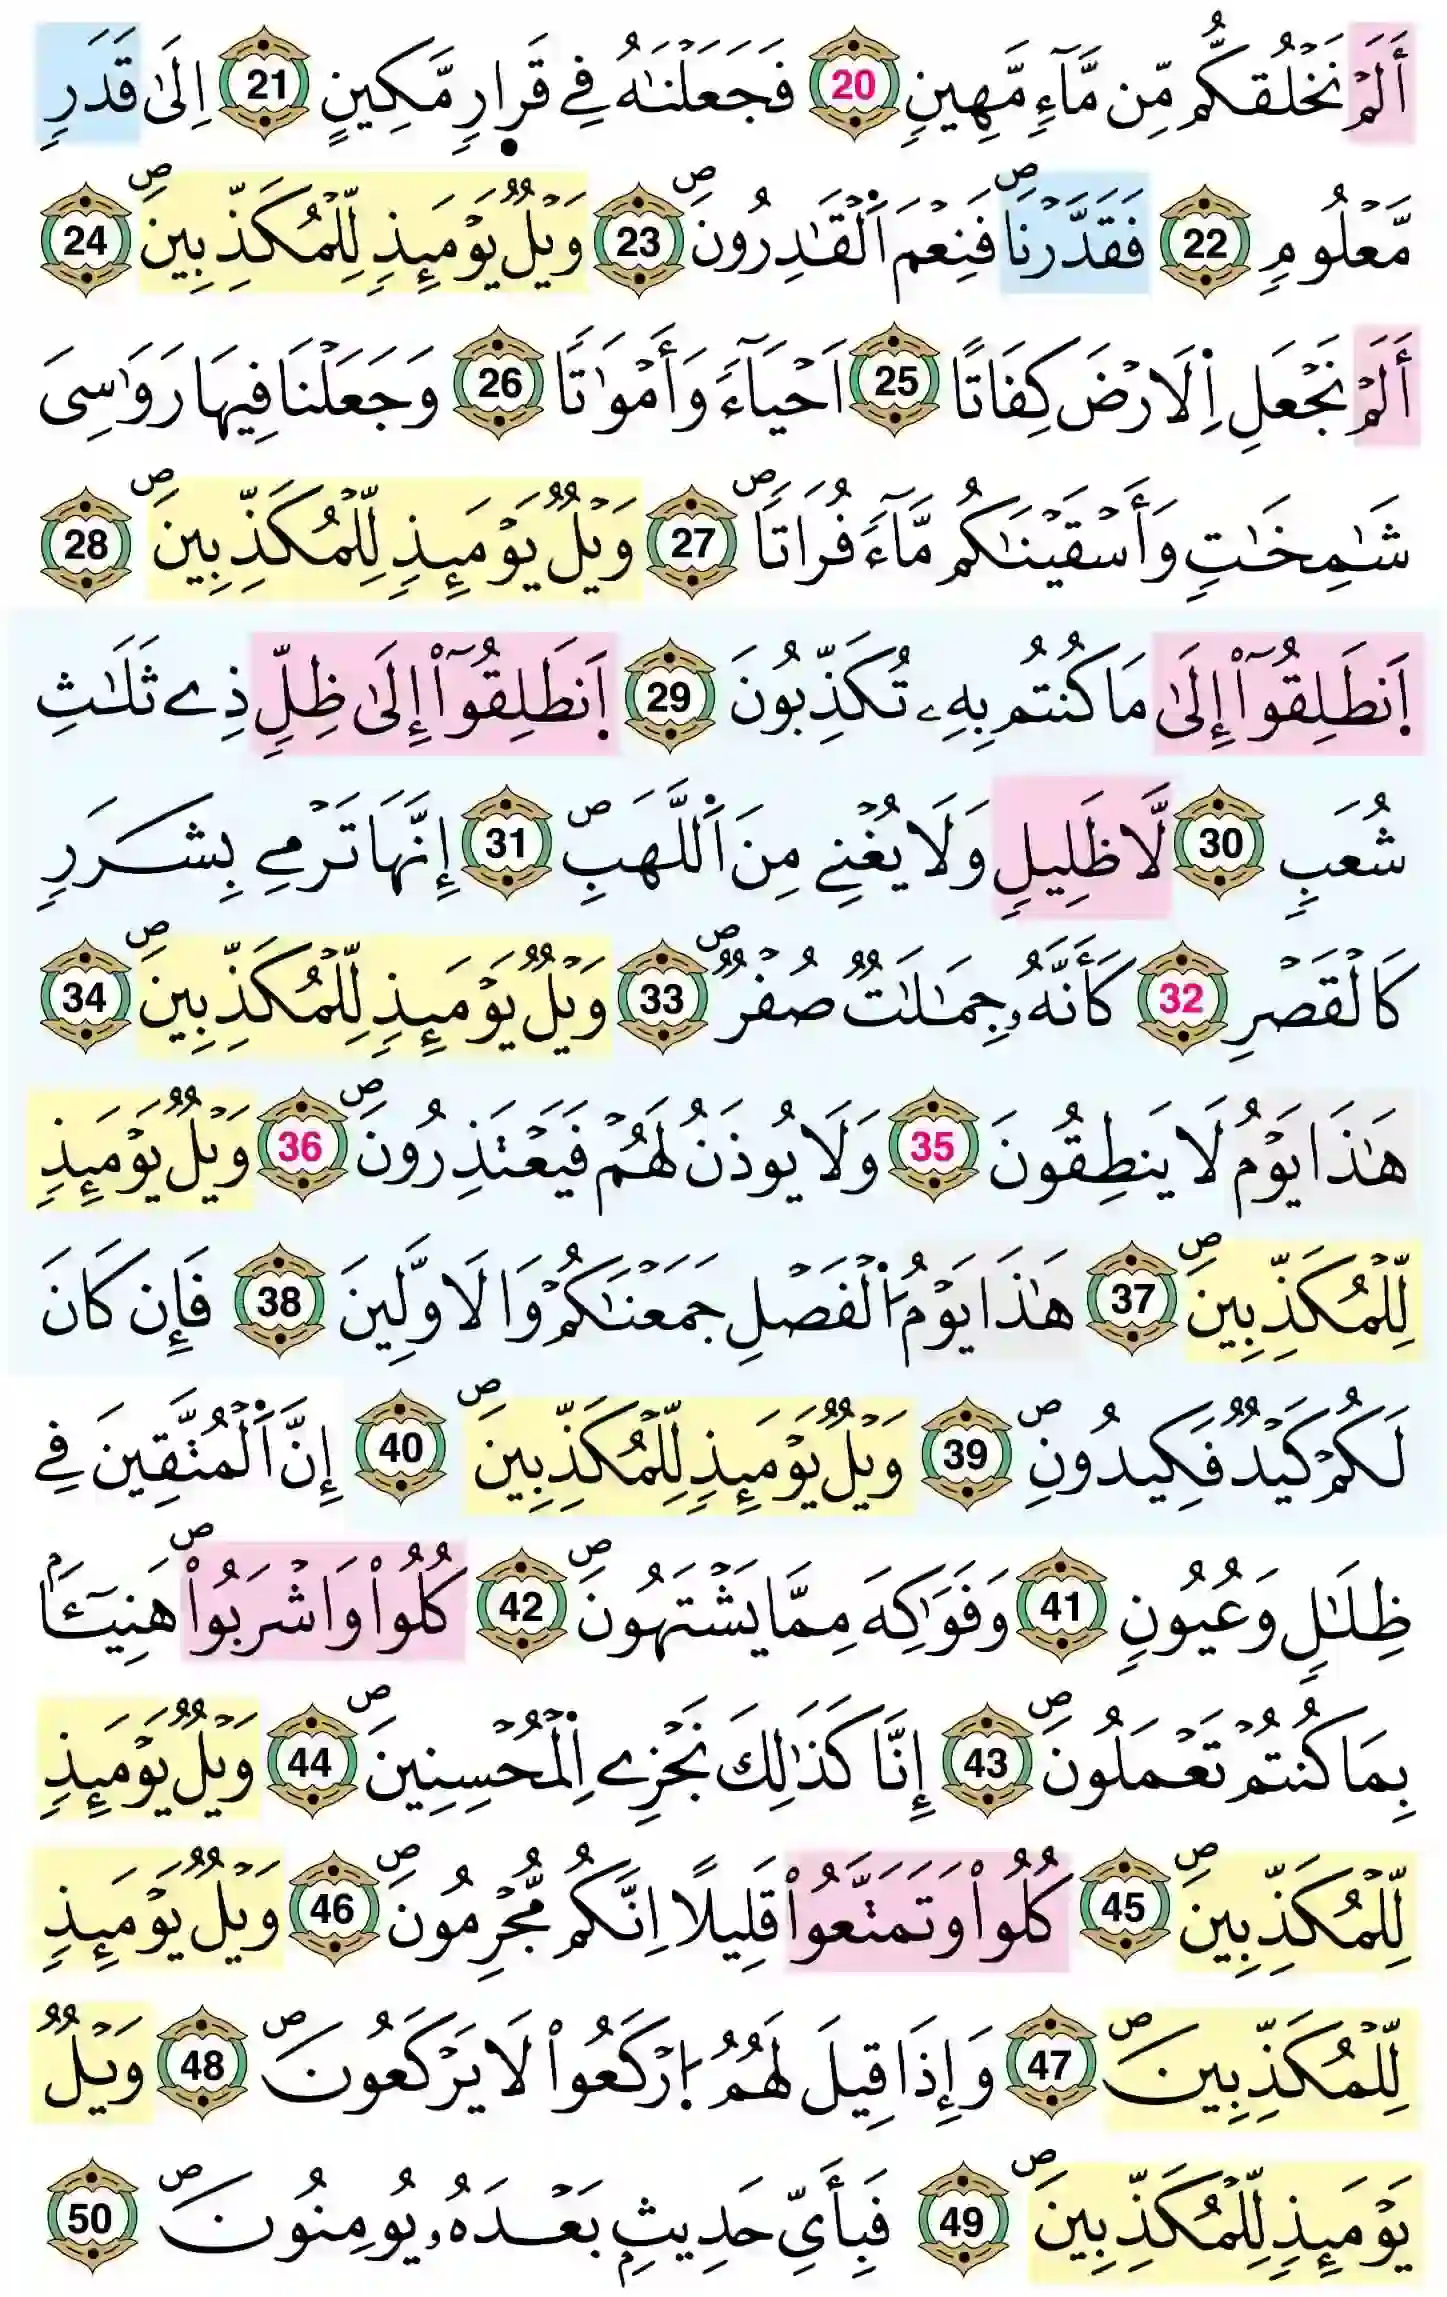 أَلَمْ نَخْلُقكُّم مِّن مَّآءٖ مَّهِينٖ 20 فَجَعَلْنَٰهُ فِے قَرارٖ مَّكِينٍ 21 اِلَىٰ قَدَرٖ
مَّعْلُومٖ 22 فَقَدَّرْنَاۖ فَنِعْمَ اَ۬لْقَٰدِرُونَۖ 23 وَيْلٞ يَوْمَئِذٖ لِّلْمُكَذِّبِينَۖ 24
أَلَمْ نَجْعَلِ اِ۬لَارْضَ كِفَاتاً 25 اَحْيَآءٗ وَأَمْوَٰتاٗ 26 وَجَعَلْنَا فِيهَا رَوَٰسِىَ
شَٰمِخَٰتٖ وَأَسْقَيْنَٰكُم مَّآءٗ فُرَاتاٗۖ 27 وَيْلٞ يَوْمَئِذٖ لِّلْمُكَذِّبِينَۖ 28
اَ۪نطَلِقُوٓاْ إِلَىٰ مَا كُنتُم بِهِۦ تُكَذِّبُونَ 29 اَ۪نطَلِقُوٓاْ إِلَىٰ ظِلّٖ ذِے ثَلَٰثِ
شُعَبٖ 30 لَّا ظَلِيلٖ وَلَا يُغْنِے مِنَ اَ۬للَّهَبِۖ 31 إِنَّهَا تَرْمِے بِشَرَرٖ
كَالْقَصْرِ 32 كَأَنَّهُۥ جِمَٰلَٰتٞ صُفْرٞۖ 33 وَيْلٞ يَوْمَئِذٖ لِّلْمُكَذِّبِينَۖ 34
هَٰذَا يَوْمُ لَا يَنطِقُونَ 35 وَلَا يُوذَنُ لَهُمْ فَيَعْتَذِرُونَۖ 36 وَيْلٞ يَوْمَئِذٖ
لِّلْمُكَذِّبِينَۖ 37 هَٰذَا يَوْمُ اُ۬لْفَصْلِ جَمَعْنَٰكُمْ وَالَاوَّلِينَ 38 فَإِن كَانَ
لَكُمْ كَيْدٞ فَكِيدُونِۖ 39 وَيْلٞ يَوْمَئِذٖ لِّلْمُكَذِّبِينَۖ 40 إِنَّ اَ۬لْمُتَّقِينَ فِے
ظِلَٰلٖ وَعُيُونٖ 41 وَفَوَٰكِهَ مِمَّا يَشْتَهُونَۖ 42 كُلُواْ وَاشْرَبُواْۖ هَنِيٓـَٔاَۢ
بِمَا كُنتُمْ تَعْمَلُونَۖ 43 إِنَّا كَذَٰلِكَ نَجْزِے اِ۬لْمُحْسِنِينَۖ 44 وَيْلٞ يَوْمَئِذٖ
لِّلْمُكَذِّبِينَۖ 45 كُلُواْ وَتَمَتَّعُواْ قَلِيلًا اِنَّكُم مُّجْرِمُونَۖ 46 وَيْلٞ يَوْمَئِذٖ
لِّلْمُكَذِّبِينَۖ 47 وَإِذَا قِيلَ لَهُمُ اُ۪رْكَعُواْ لَا يَرْكَعُونَۖ 48 وَيْلٞ
يَوْمَئِذٖ لِّلْمُكَذِّبِينَۖ 49 فَبِأَيِّ حَدِيثِۢ بَعْدَهُۥ يُومِنُونَۖ 50